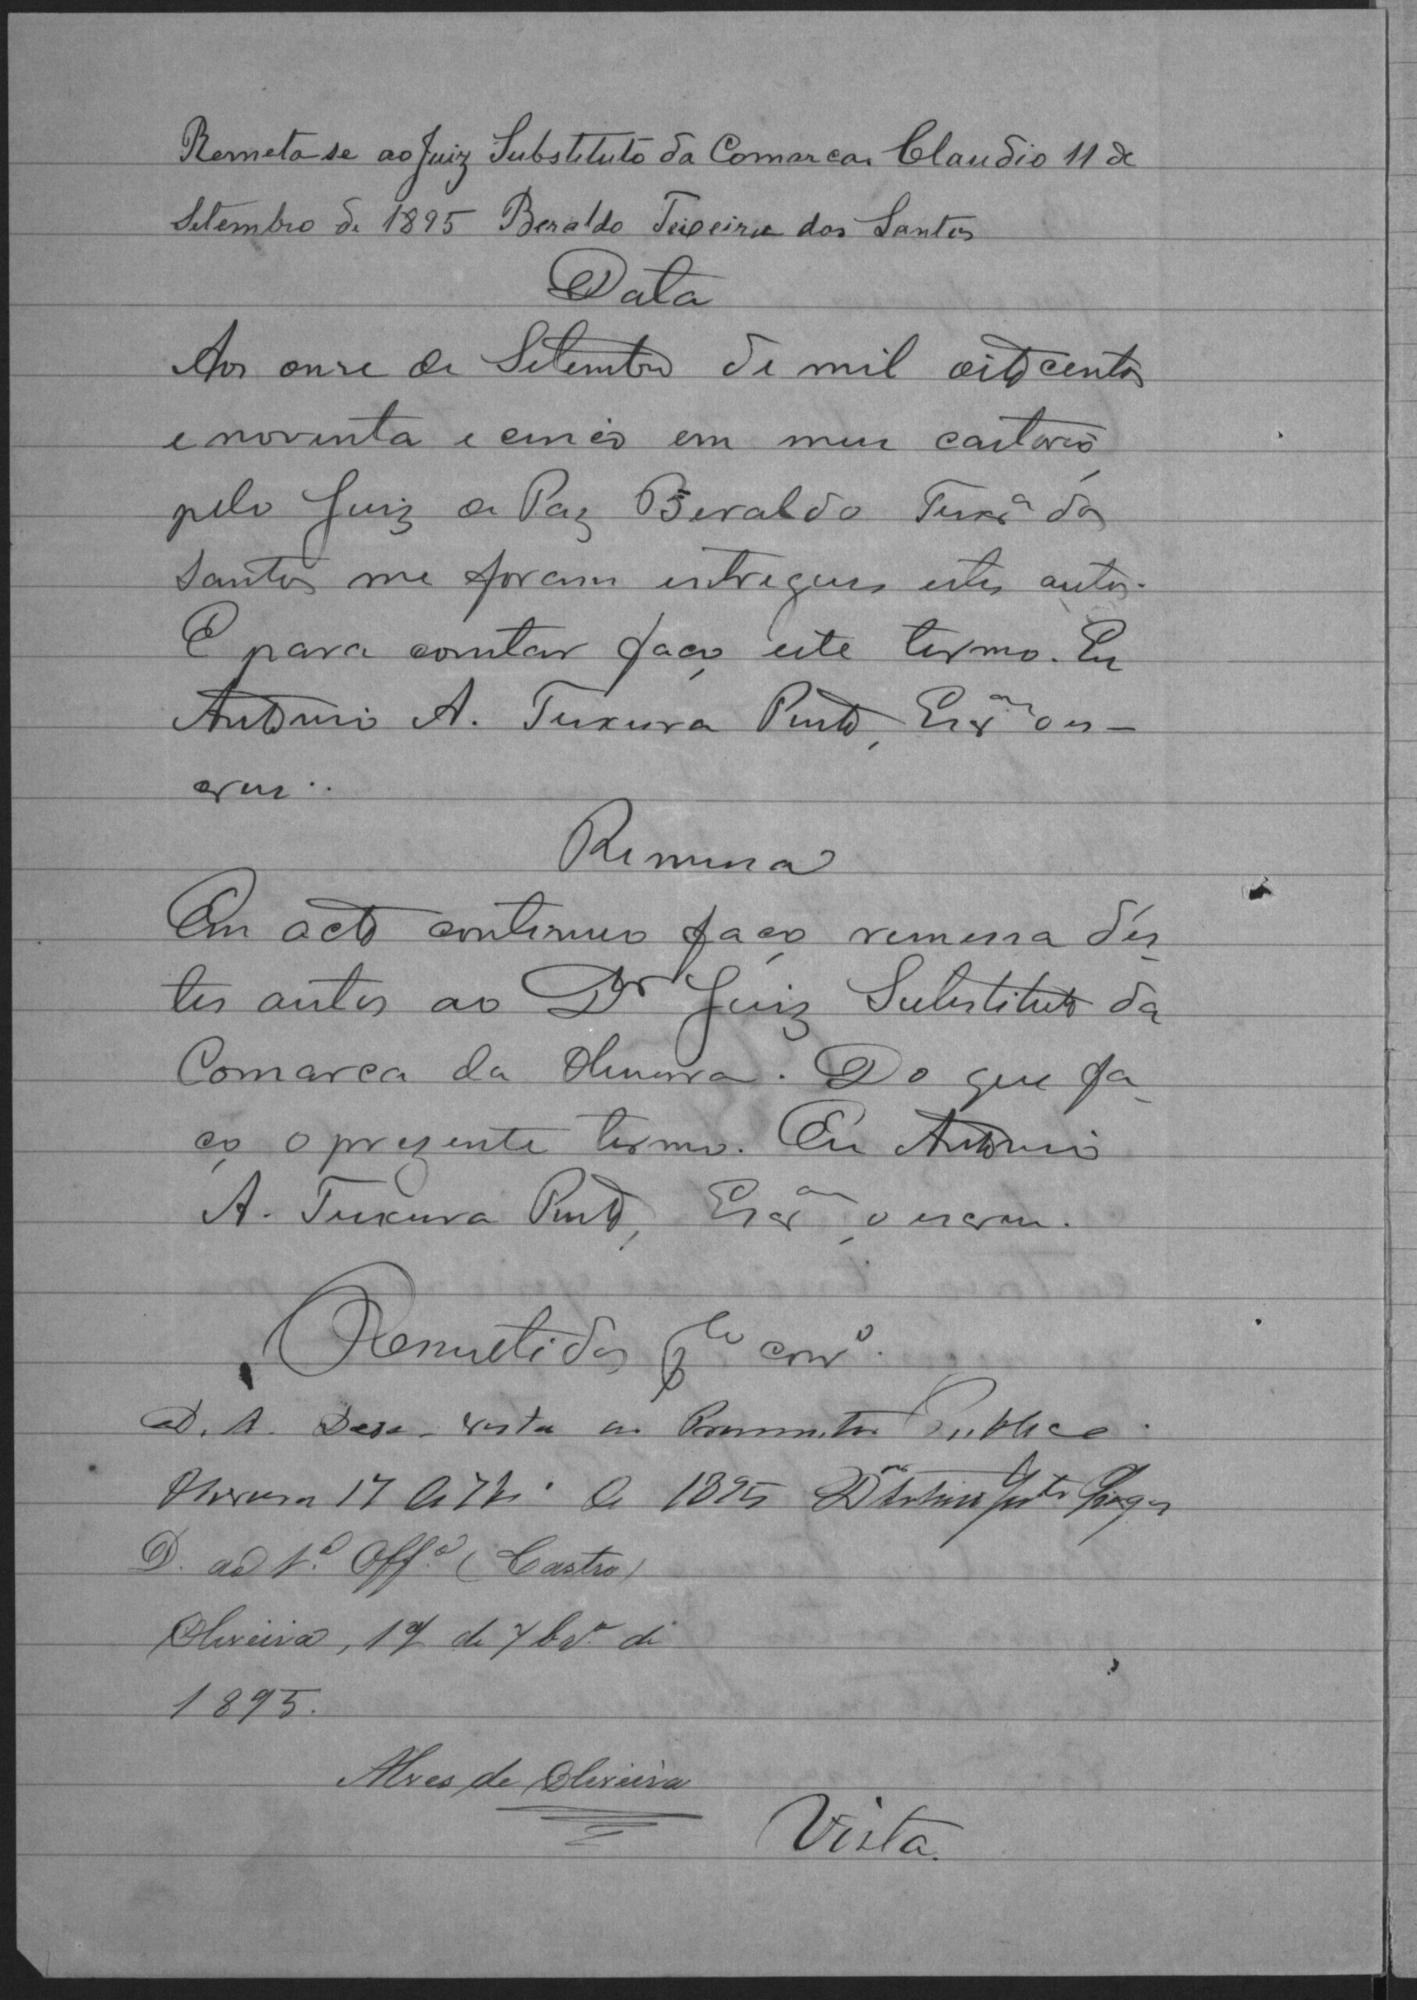 Remeta-se ao Juiz Substituto da Comarca. Claudio 11 de
Setembro de 1895 Beraldo Teixeira dos Santos
Data
Aos onze de Setembro de mil oitocentos
e noventa e cinco em meu cartorio
pelo Juiz de Paz Beraldo Teixrª dos
Santos me foram entregues estes autos.
E para constar faço este termo. Eu
Antonio A. Teixeira Pinto, Escrᵃᵐ o es-
crevi.
Remessa
Em acto continuo faço remessa des-
tes autos ao Dr Juiz Substituto da
Comarca da Oliveira. Do que fa-
ço o prezente termo. Eu Antonio
A. Teixeira Pinto, Escrᵃᵐ, o escrevi.
Remettidos pelo corrº.
D. A. Dese vista ao Promotor Publico.
Oliveira 17 de 7bro de 1895
D. ao 1º Offº (Castro)
Oliveira, 17 de 7bro de
1895.
Alves de Oliveira
Vista.